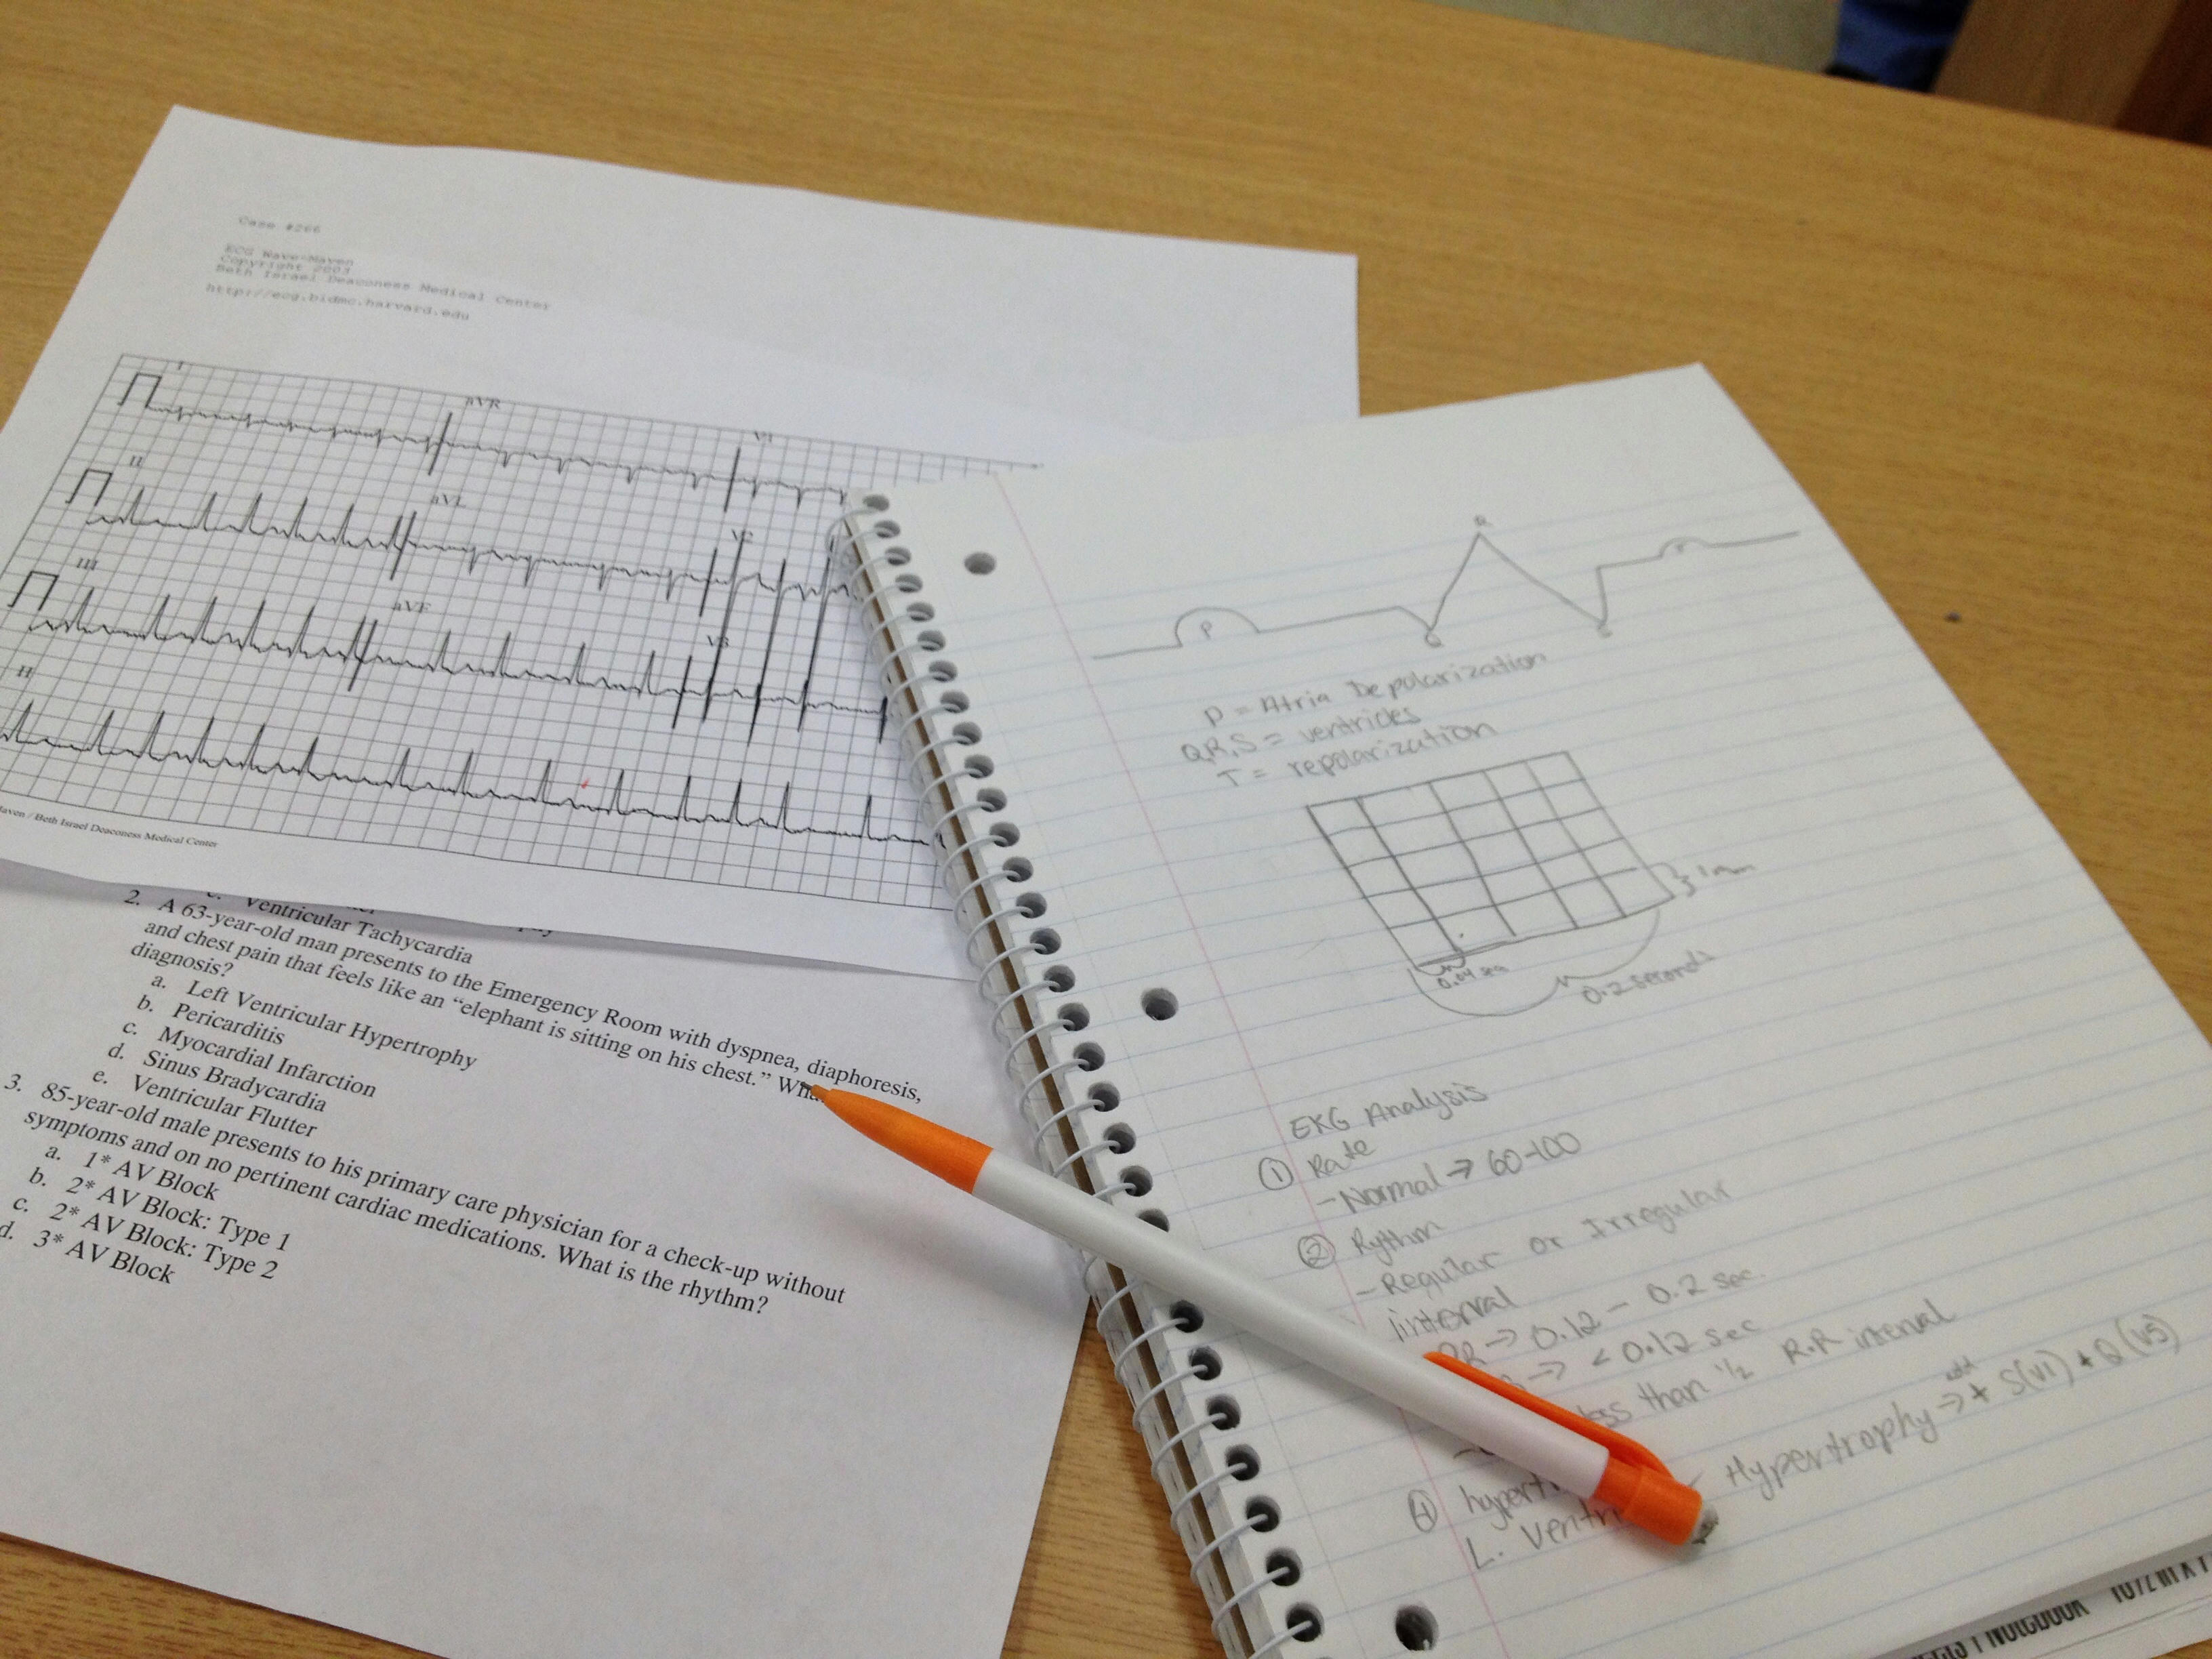 Case #266
ECG Wave-Maven
Copyright 2003
Beth Israel Deaconess Medical Center
http://ecg.bidmc.harvard.edu
I
aVR
V1
II
aVL
V2
III
aVF
V3
II
Maven / Beth Israel Deaconess Medical Center
e. Ventricular Tachycardia
2. A 63-year-old man presents to the Emergency Room with dyspnea, diaphoresis,
and chest pain that feels like an “elephant is sitting on his chest.” Wha
diagnosis?
a. Left Ventricular Hypertrophy
b. Pericarditis
c. Myocardial Infarction
d. Sinus Bradycardia
e. Ventricular Flutter
3. 85-year-old male presents to his primary care physician for a check-up without
symptoms and on no pertinent cardiac medications. What is the rhythm?
a. 1* AV Block
b. 2* AV Block: Type 1
c. 2* AV Block: Type 2
d. 3* AV Block
P
R
Q
S
T
P = Atria Depolarization
Q,R,S = ventricles
T = repolarization
1mm
0.04 sec
0.2 seconds
EKG Analysis
① Rate
- Normal → 60-100
② Rythm
- Regular or Irregular
interval
PR → 0.12 - 0.2 sec.
→ < 0.12 sec
less than 1/2 R.R interval
④ hypert
L. Ventri Hypertrophy → add + S(V1) + Q (V5)
NOTEBOOK